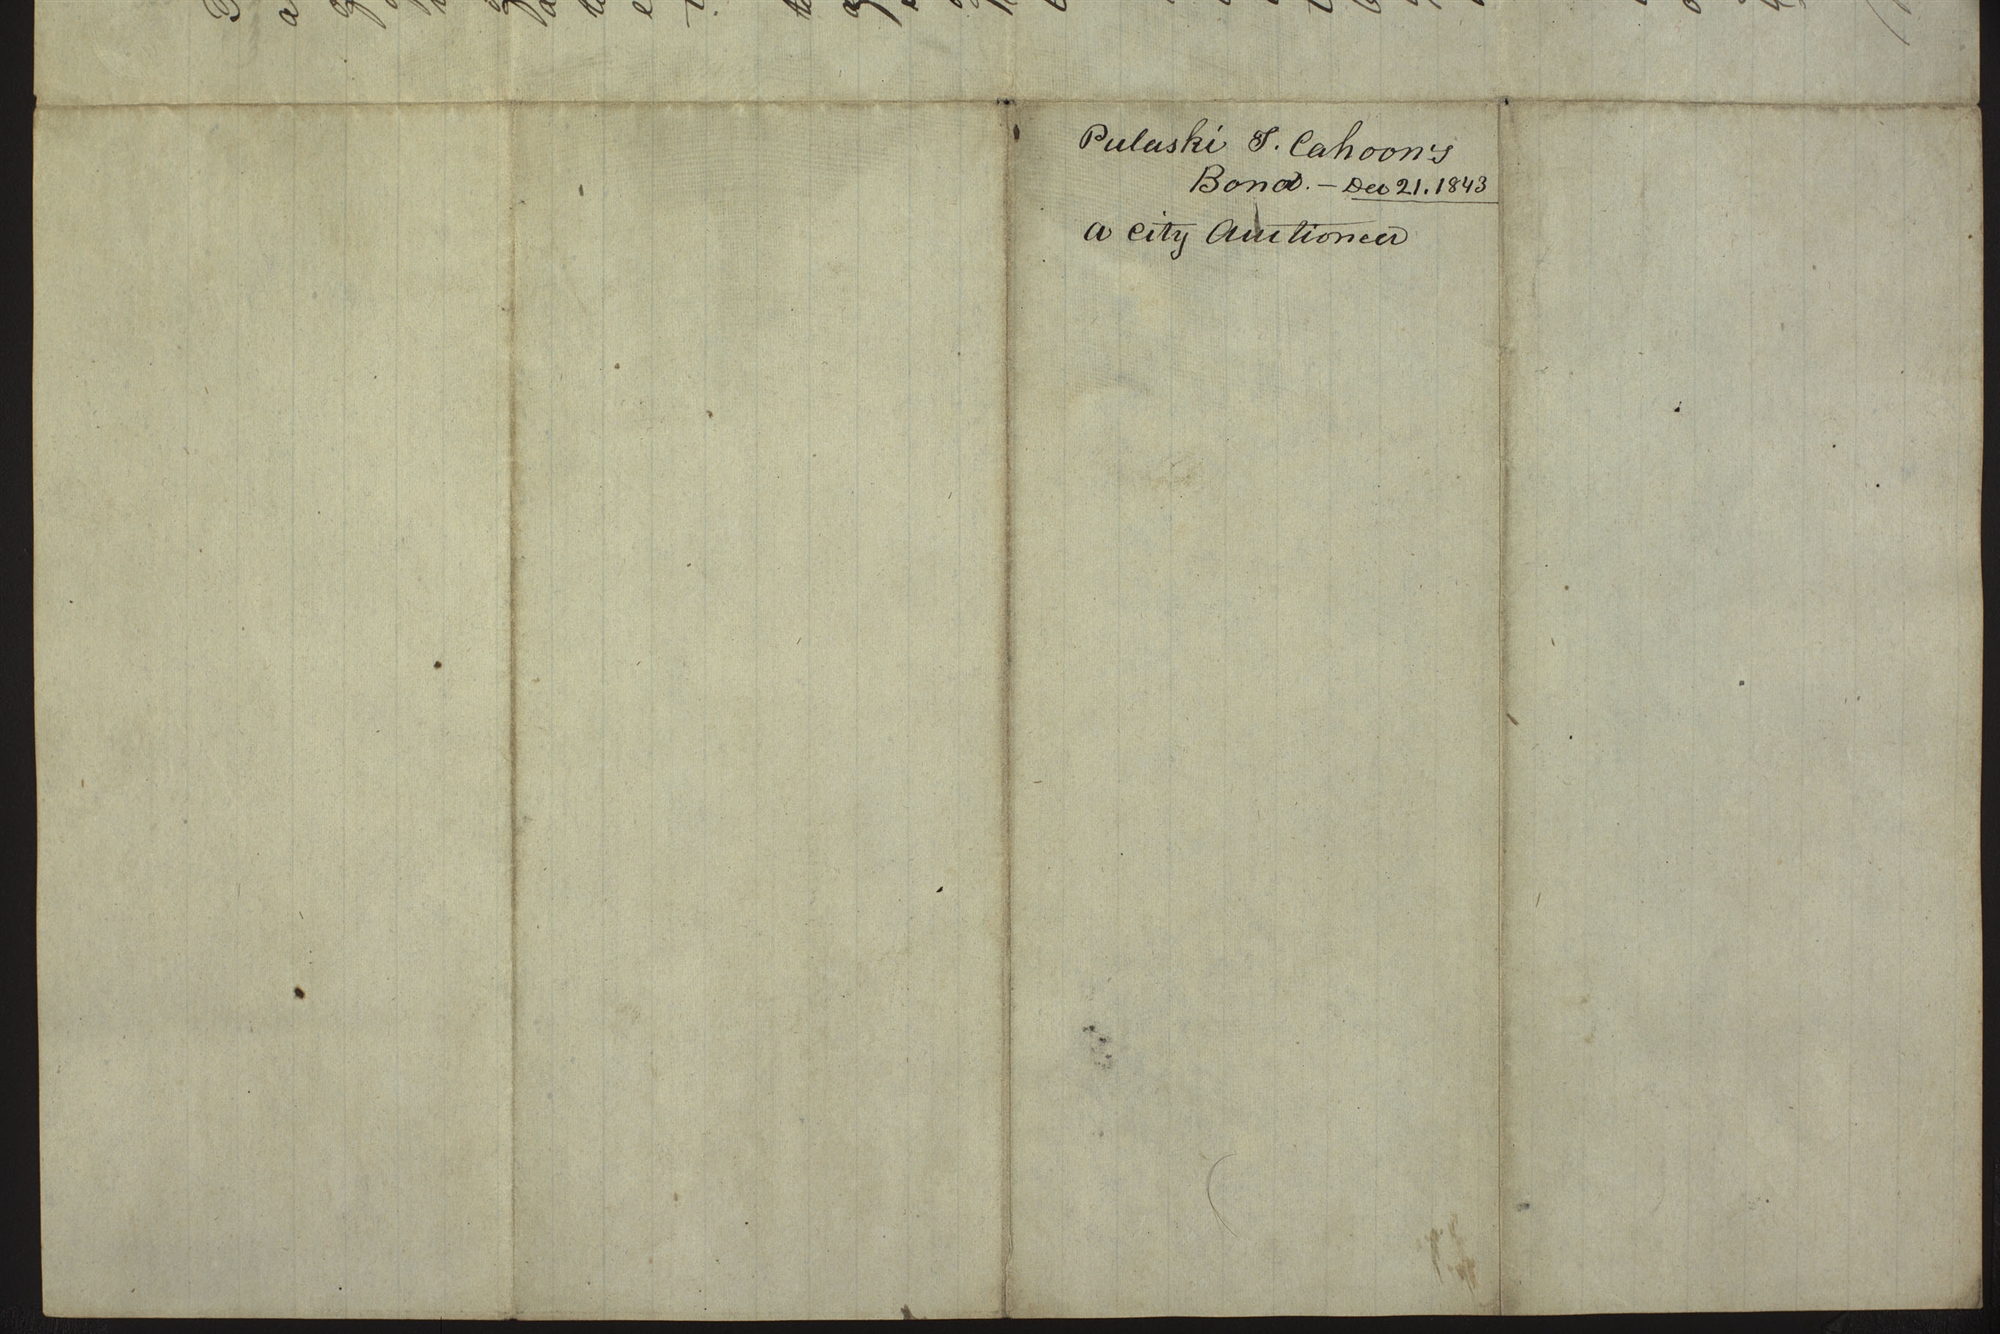 Pulaski S. Cahoon's
Bond. — Dec 21. 1843
a City Auctioneer